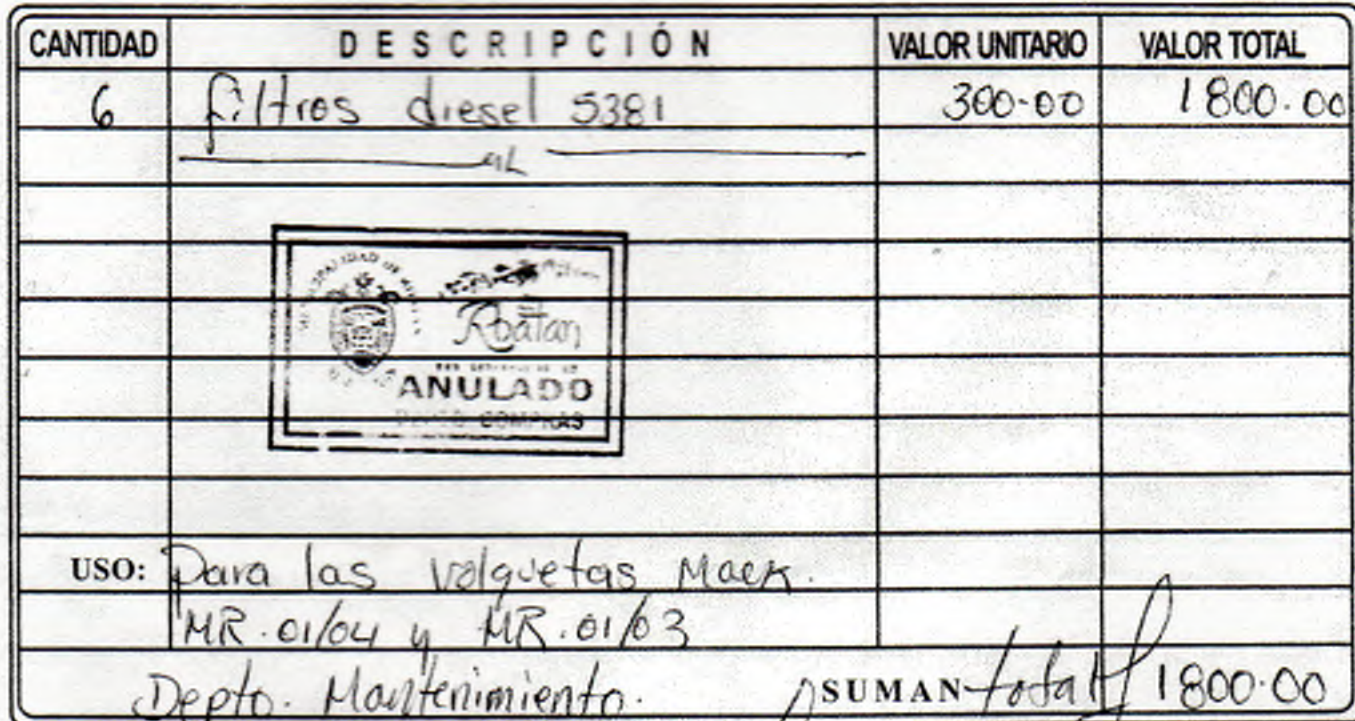 CANTIDAD DESCRIPCIÓN VALOR UNITARIO VALOR TOTAL
6 filtros diesel 5381 300.00 1800.00
UL
MUNICIPALIDAD DE
Roatan
ANULADO
DEPTO COMPRAS
USO: Para las volquetas Mack.
MR.01/04 y MR.01/03
Depto. Mantenimiento. SUMAN total 1800.00